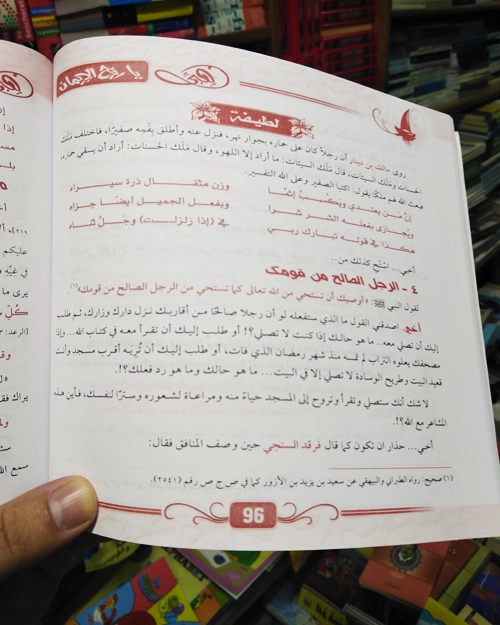 يا ريح الإيمان
لطيفة
روى مالك بن دينار أن رجلاً كان على حماره بجوار نهر، فنزل عنه وأطلق بفمه صفيرًا، فاختلف مَلَك
الحسنات ومَلَك السيئات، قال مَلَك السيئات: ما أراد إلا اللهو، وقال مَلَك الحسنات: أراد أن يسقي حماره،
فبعث الله لهم ملكًا يقول: اكتبا الصفير وعلى الله التفسير.
إنَّ مَن يعتدي ويكسب إثمًا وزن مثقال ذرة سيراه
ويُجازى بفعله الشر شرا وبفعل الجميل أيضًا جزاه
هكذا في قوله تبارك ربي في (إذا زلزلت) وجلَّ ثناه
أخي... استَحِ كذلك من..
٤ - الرجل الصالح من قومك
لقول النبي ﷺ: «أوصيك أن تستحي من الله تعالى كما تستحي من الرجل الصالح من قومك»(١)
أخي اصدقني القول ما الذي ستفعله لو أن رجلا صالحًا من أقاربك نزل دارك وزارك، ثم طلب
إليك أن تصلي معه.. ما هو حالك إذا كنت لا تصلي؟! أو طلب إليك أن تقرأ معه في كتاب الله... وإذا
مصحفك يعلوه التراب لم تمسه منذ شهر رمضان الذي فات، أو طلب إليك أن تُرِيَه أقرب مسجد وأنت
قعيد البيت وطريح الوسادة لا تصلي إلا في البيت... ما هو حالك وما هو رد فعلك؟!.
لا شك أنك ستصلي وتقرأ وتروح إلى المسجد حياءً منه ومراعاة لشعوره وسترًا لنفسك، فأين هذه
المشاعر مع الله؟!.
أخي... حذار أن تكون كما قال فرقد السنجي حين وصف المنافق فقال:
(١) صحيح: رواه الطبراني والبيهقي عن سعيد بن يزيد بن الأزور كما في ص ج ص رقم (٢٥٤١).
96